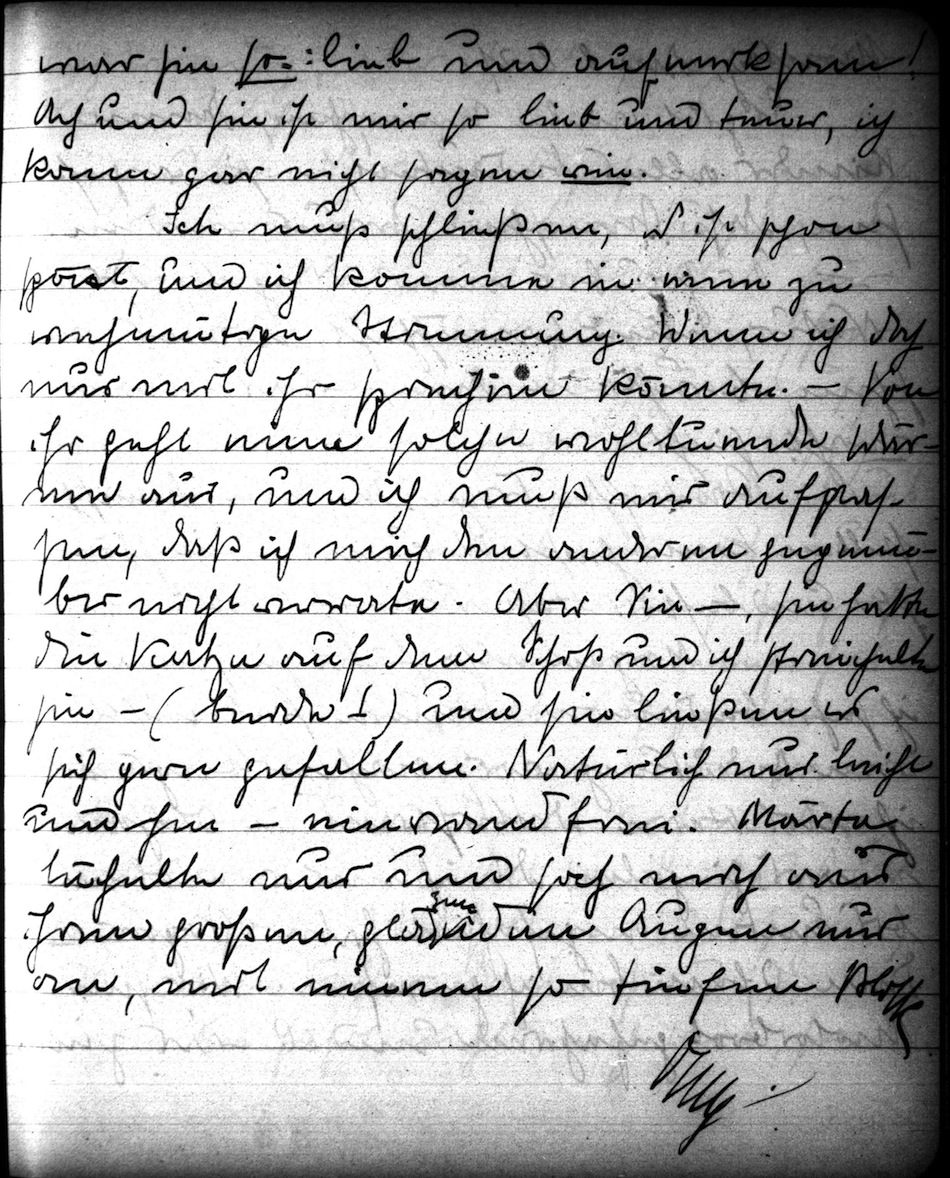 war sie so: lieb und aufmerksam!
Ach und sie ist mir so lieb und teuer, ich
kann gar nicht sagen wie.
Ich muß schließen, es ist schon
spät, und ich komme in eine zu
wehmütige Stimmung. Wenn ich doch
nur mit ihr sprechen könnte. – Von
ihr geht eine solche wohltuende Wär-
me aus, und ich muß mir aufpas-
sen, daß ich mich den anderen gegenü-
ber nicht verrate. Aber Sie –, sie hatte
die Katze auf dem Schoß und ich streichelte
sie – (beide!) und sie ließen es
sich gern gefallen. Natürlich nur leicht
und fein – einwandfrei. Märta
lächelte nur und sah mich aus
ihren großen, glänzenden Augen nur
an, mit einem so tiefen Blick